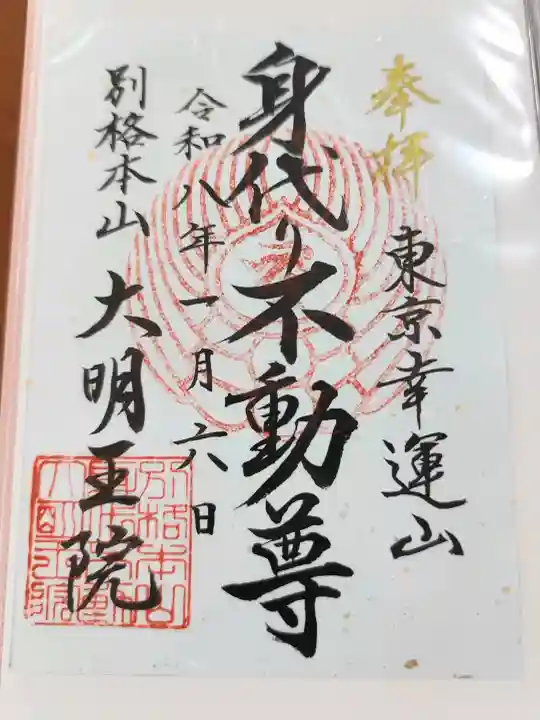 奉拝
東京幸運山
身代り不動尊
令和八年一月六日
別格本山
大明王院